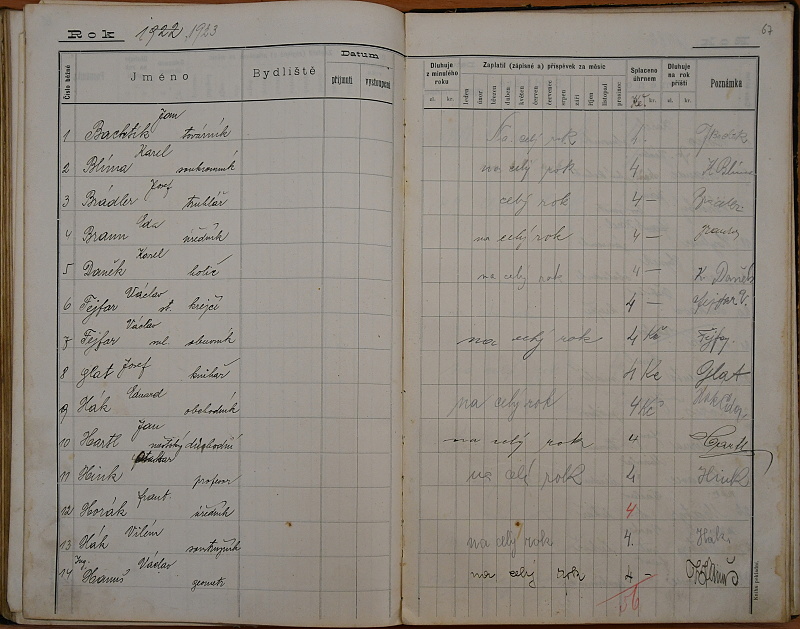 Rok 1922, 1923
67
Číslo běžné
Jméno
Bydliště
Datum
přijmutí
vystoupení
Dluhuje z minulého roku
zl. kr.
Zaplatil (zápisné a) příspěvek za měsíc
leden únor březen duben květen červen červenec srpen září říjen listopad prosinec
Splaceno úhrnem
Kč. kr.
Dluhuje na rok příští
zl. kr.
Poznámka
1 Jan továrník Na celý rok 4.
2 Blíma Karel soukromník na celý rok 4. K Blíma
3 Brádler Josef truhlář celý rok 4 —
4 Braun Eda úředník na celý rok 4 —
5 Daněk Karel holič na celý rok 4 — K Daněk
6 Fejfar Václav st. krejčí 4 — Fejfar V.
7 Fejfar Václav ml. na celý rok 4 Kč
8 Glat Josef knihař 4 Kč Glat
9 Hák Eduard obchodník na celý rok 4 Kč
10 Hartl Jan důchodní na celý rok 4 Hartl
11 Hink profesor na celý rok 4 Hink
12 Horák Frant. úředník 4
13 Hák Vilém na celý rok 4. Hák
14 Ing. Hanuš Václav geometr na celý rok 4 — Hanuš